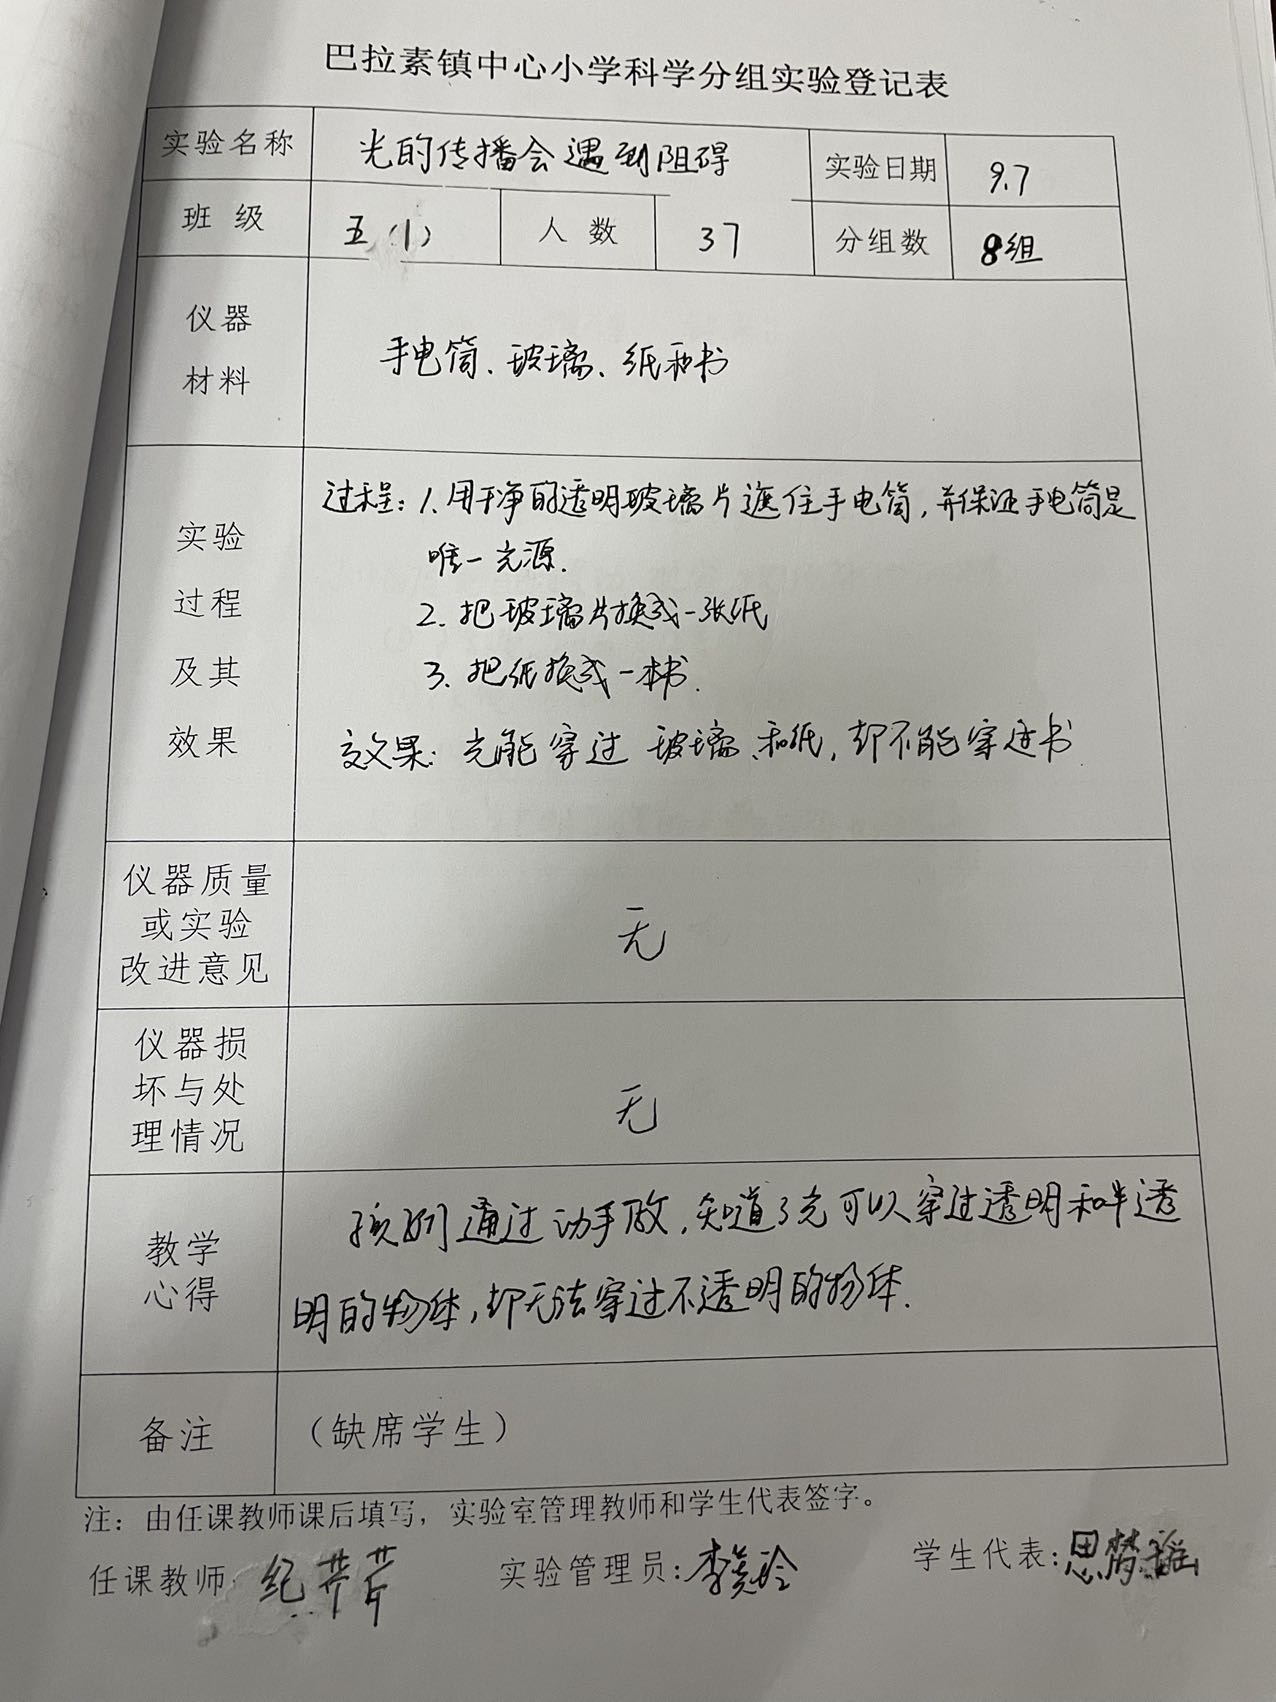 巴拉素镇中心小学科学分组实验登记表
实验名称 光的传播会遇到阻碍 实验日期 9.7
班 级 五(1) 人 数 37 分组数 8组
仪器
材料
手电筒、玻璃、纸和书
实验
过程
及其
效果
过程：1.用干净的透明玻璃片遮住手电筒，并保证手电筒是
唯一光源.
2.把玻璃片换成一张纸
3.把纸换成一本书.
效果：光能穿过玻璃、和纸，却不能穿过书
仪器质量
或实验
改进意见
无
仪器损
坏与处
理情况
无
教学
心得
孩们通过动手做，知道了光可以穿过透明和半透
明的物体，却无法穿过不透明的物体.
备注
（缺席学生）
注：由任课教师课后填写，实验室管理教师和学生代表签字。
任课教师：纪芹芹 实验管理员：李 玲 学生代表：思梦瑶